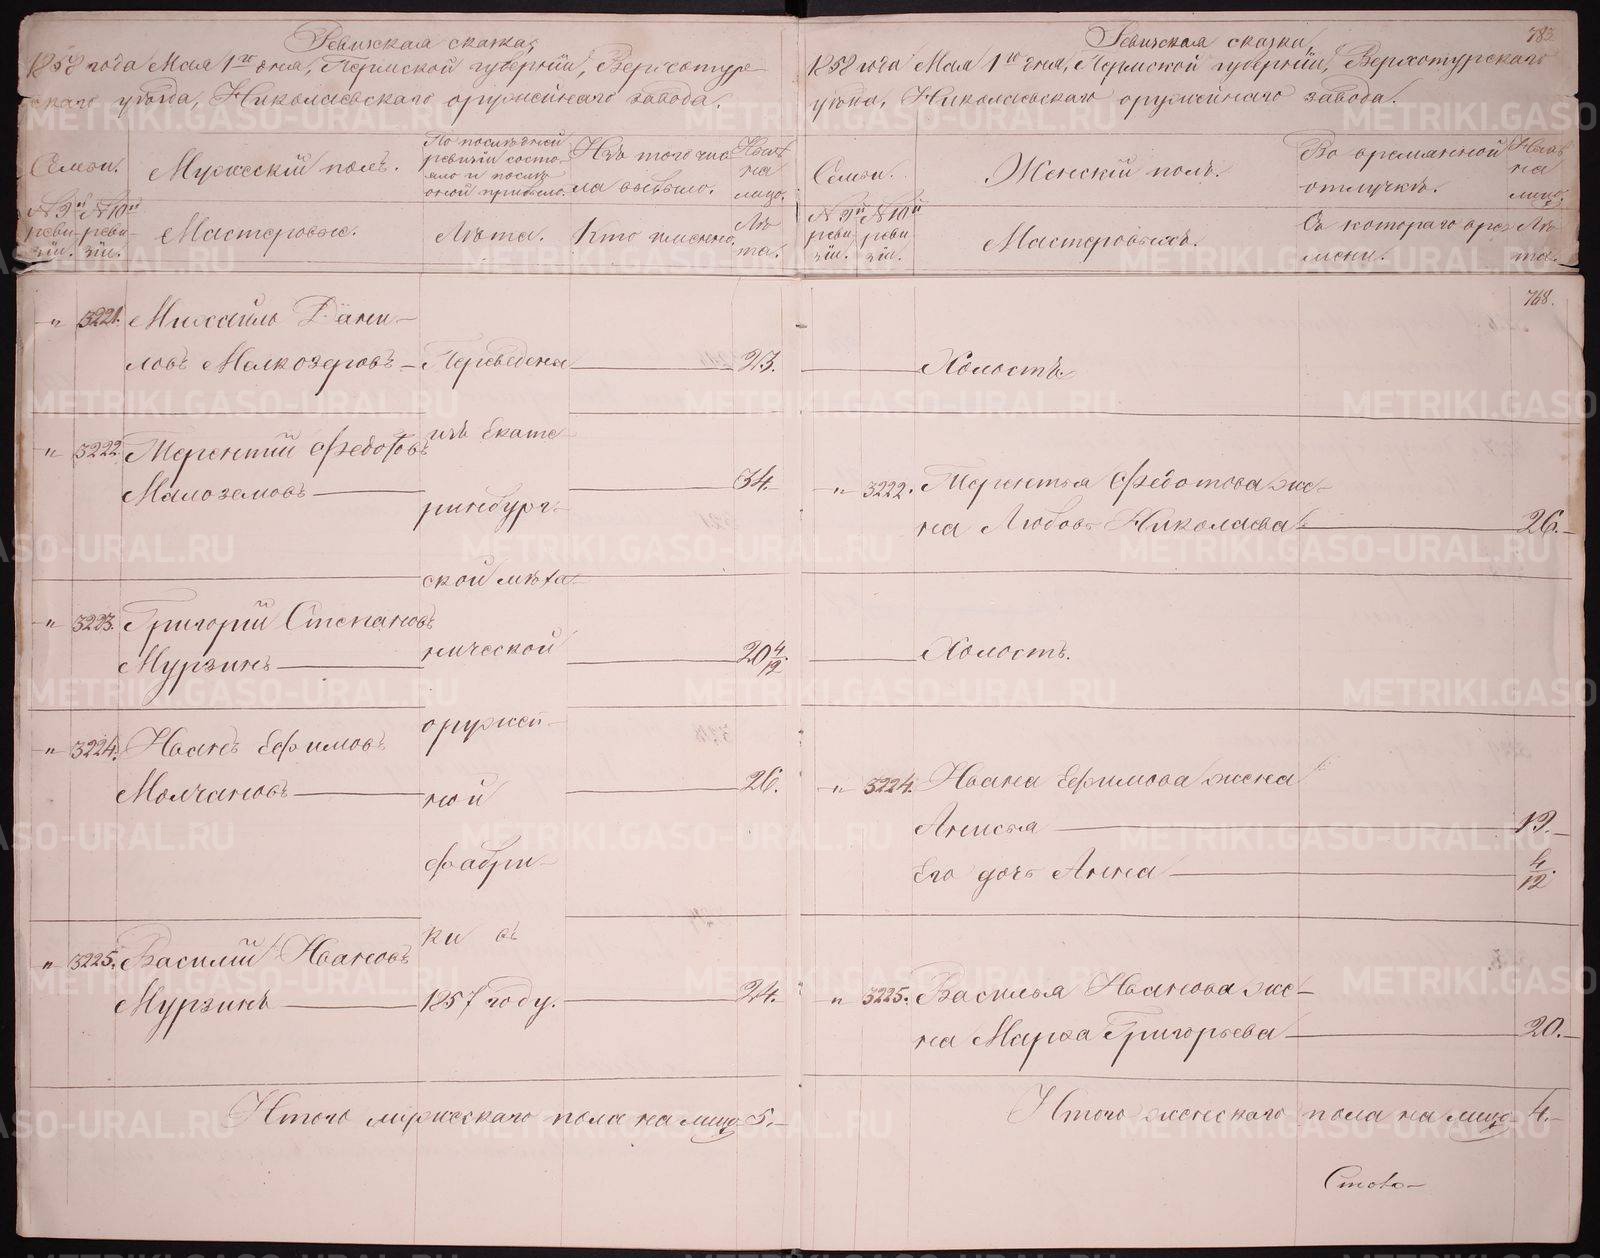 Ревизская сказка,
1858 года Мая 1го дня, Пермской губернiи, Верхотур-
скаго уѣзда, Николаевскаго оружейнаго завода.
Семьи.
Мужескiй полъ.
По послѣдней
ревизiи состо-
яло и послѣ
оной прибыло.
Изъ того чис-
ла выбыло.
Нынѣ
на
лицо.
№ 9й
реви-
зiи.
№ 10й
реви-
зiи.
Мастеровые.
Лѣта.
Кто именно.
Лѣ
та.
" 3221. Михайло Дани-
ловъ Мелкозеровъ - Переведены 23.
" 3222. Терентiй Федотовъ
изъ Екате-
Малоземовъ 34.
ринбург-
ской меха-
" 3223. Григорiй Степановъ
нической
Мурзинъ 20 4/12.
оружей-
" 3224. Иванъ Ефимовъ
Молчановъ ной 26.
фабри-
ки въ
" 3225. Василiй Ивановъ
Мурзинъ 1857 году. 24.
Итого мужескаго пола на лицо 5.
783
Ревизская сказка,
1858 года Мая 1го дня, Пермской губернiи, Верхотурскаго
уѣзда, Николаевскаго оружейнаго завода.
Семьи.
Женскiй полъ.
Во временной
отлучкѣ.
Нынѣ
на
лицо.
№ 9й
реви
зiи.
№ 10й
реви
зiи.
Мастеровыхъ.
Съ котораго вре-
мени.
Лѣ
та.
768.
Холостъ.
" 3222. Терентья Федотова же-
на Любовь Николаева 26.
Холостъ.
" 3224. Ивана Ефимова жена
Анисья 19.
Его дочь Анна 4/12.
" 3225. Василья Иванова же-
на Марфа Григорьева 20.
Итого женскаго пола на лицо 4.
METRIKI.GASO-URAL.RU